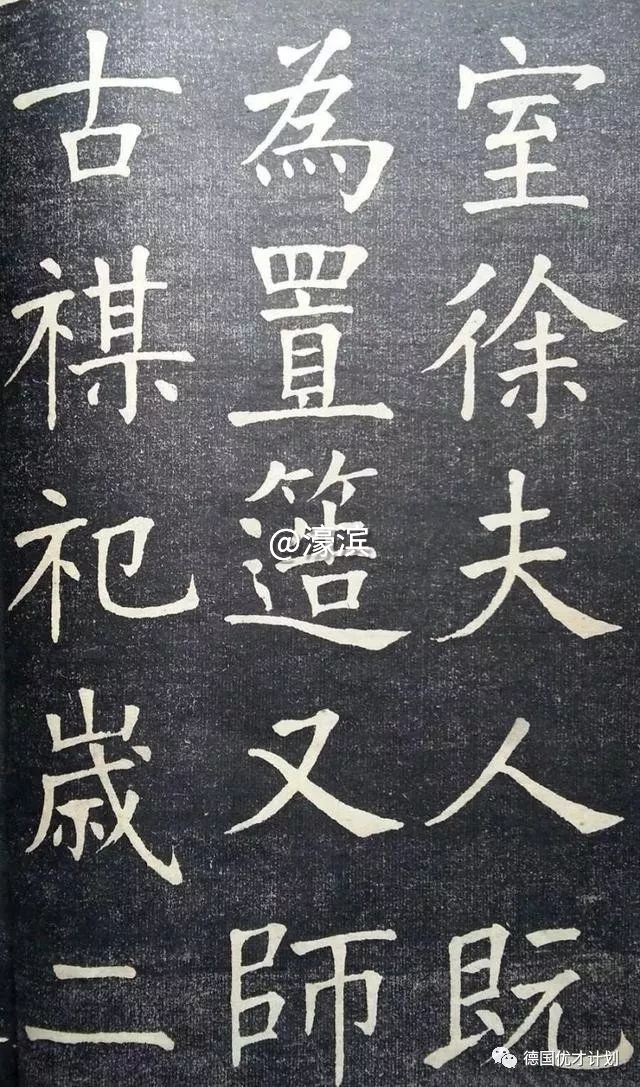 室徐夫人既
為置簉又師
古禖祀歲二
@濠滨
德国优才计划